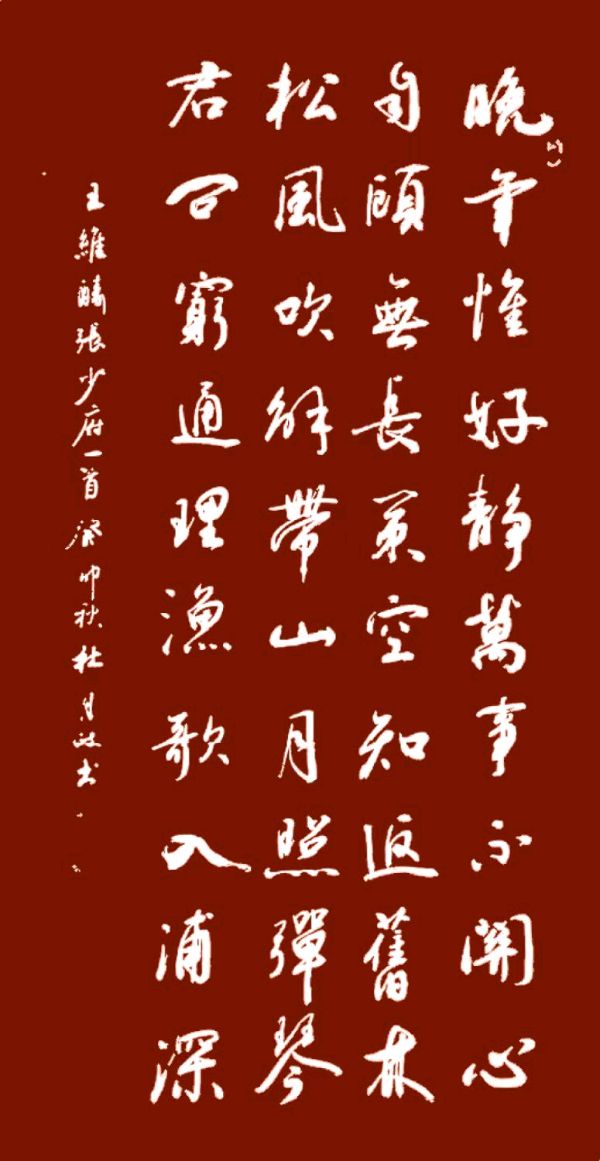 晚年惟好靜萬事不關心
自顧無長策空知返舊林
松風吹解帶山月照彈琴
君問窮通理漁歌入浦深
王維酬張少府一首癸卯秋杜月政书